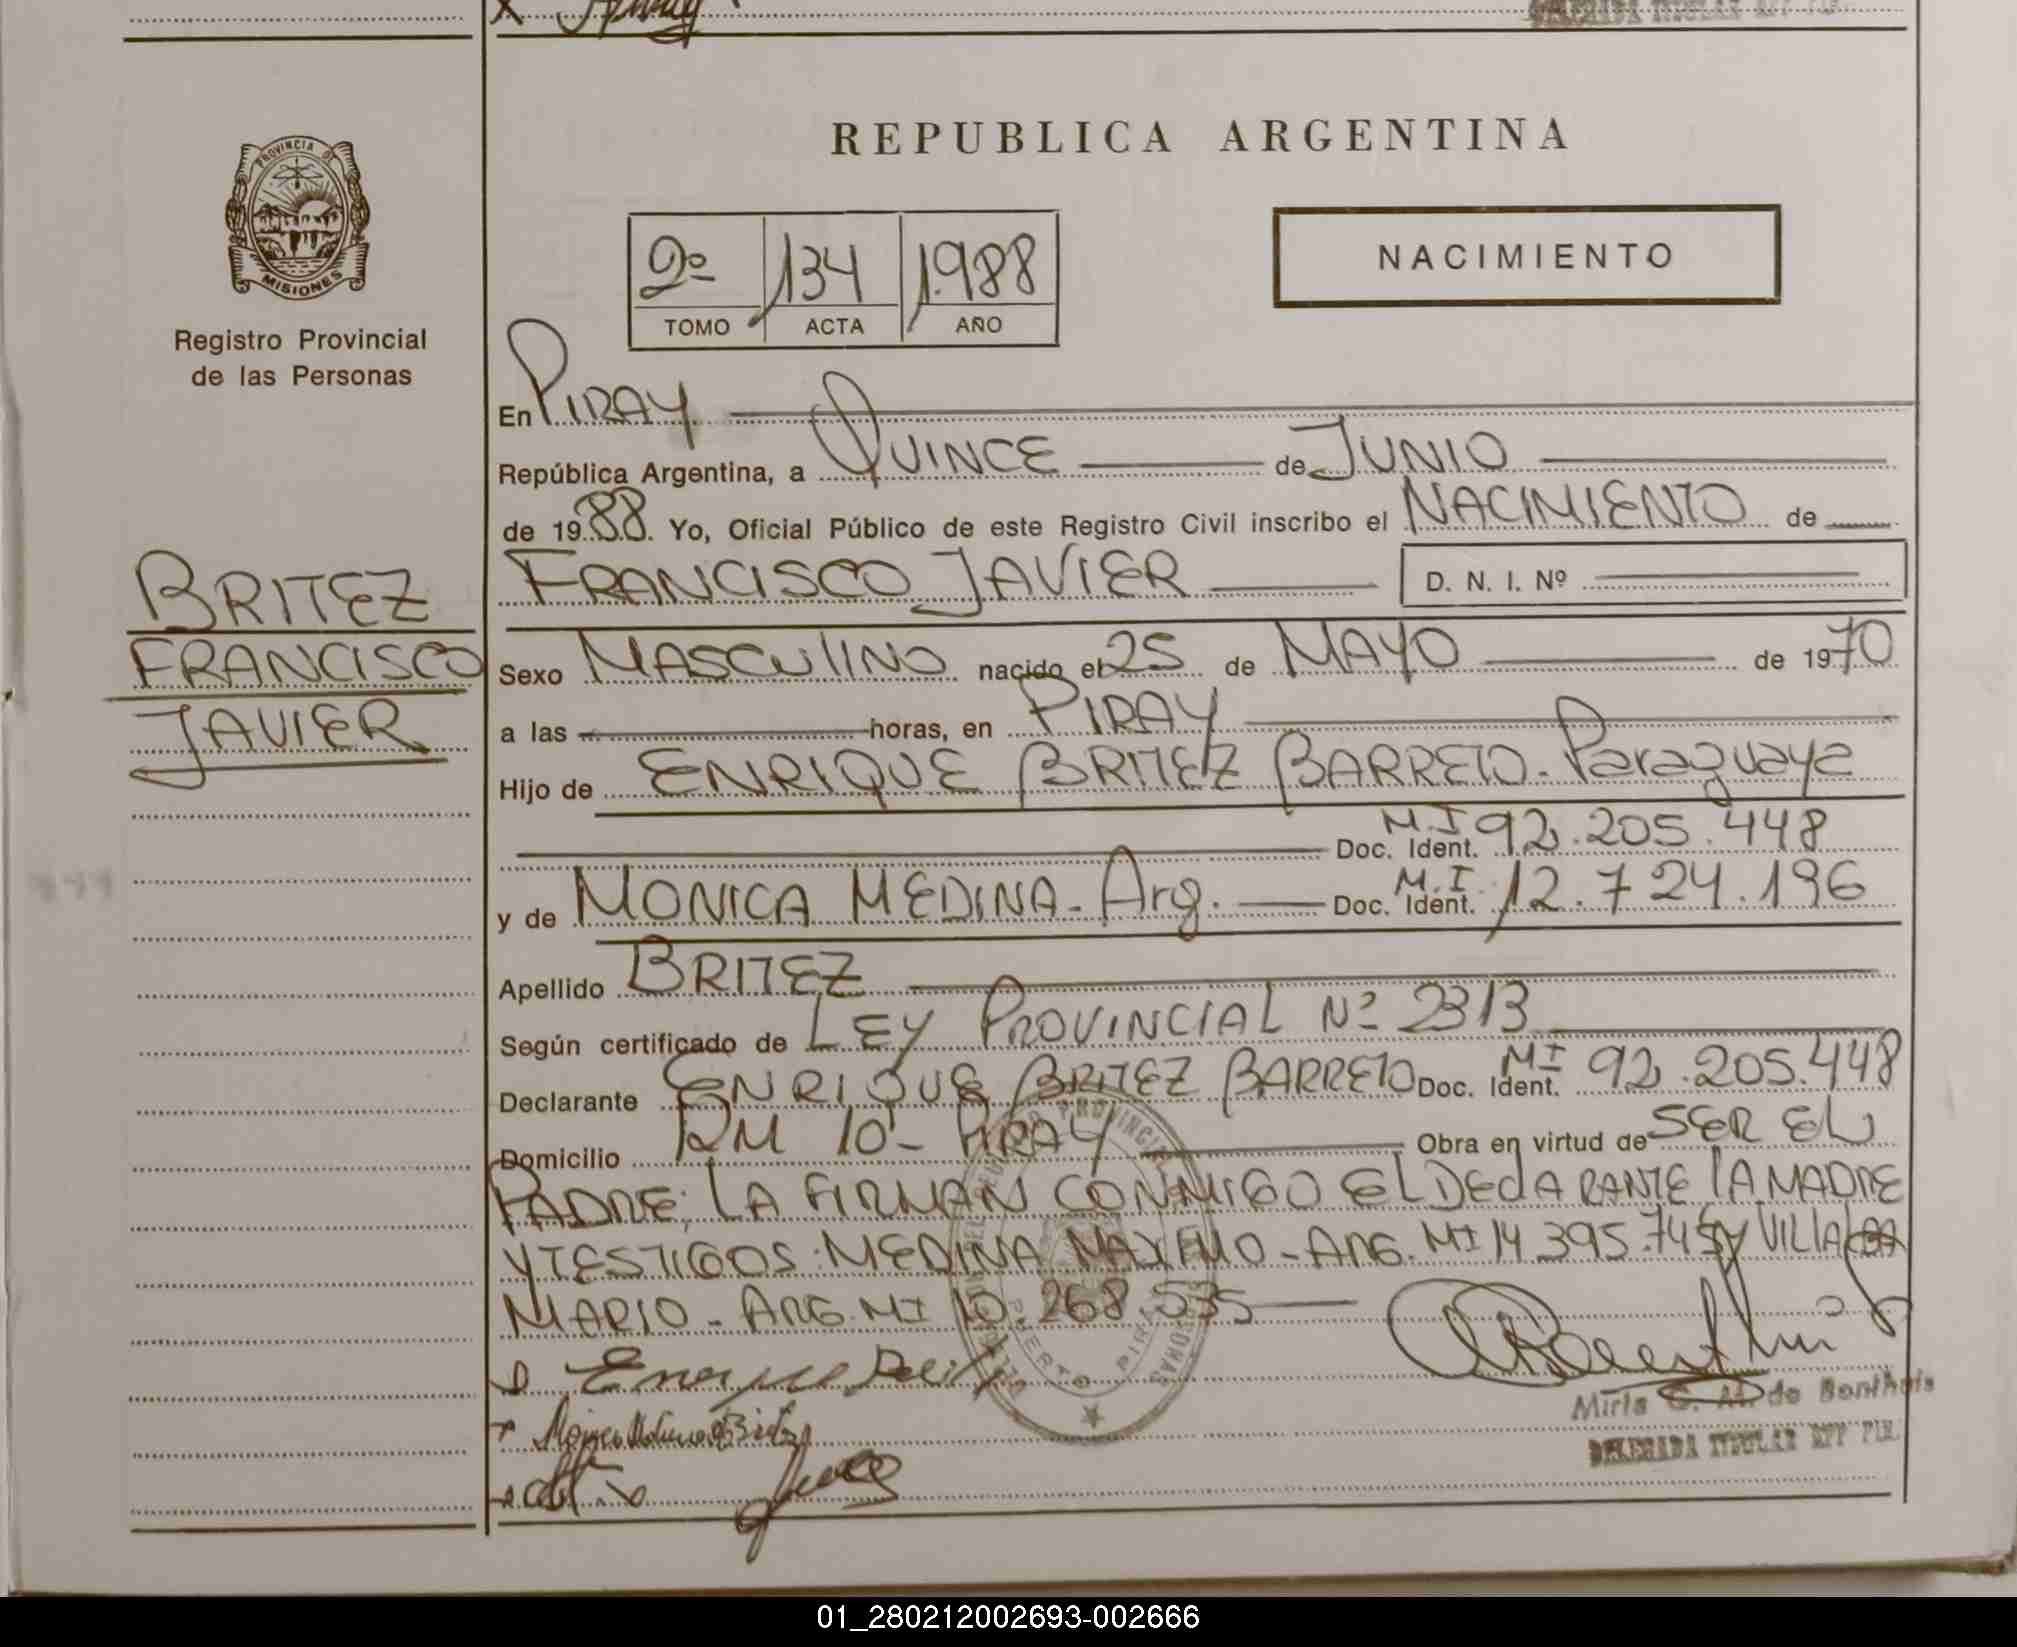 REPUBLICA ARGENTINA
PROVINCIA DE
MISIONES
Registro Provincial
de las Personas
2º 134 1.988
TOMO ACTA AÑO
NACIMIENTO
En PIRAY
República Argentina, a QUINCE de JUNIO
de 1988. Yo, Oficial Público de este Registro Civil inscribo el NACIMIENTO de
FRANCISCO JAVIER D. N. I. Nº
BRITEZ
FRANCISCO
JAVIER
Sexo MASCULINO nacido el 25 de MAYO de 1970
a las horas, en PIRAY
Hijo de ENRIQUE BRITEZ BARRETO - Paraguaya
Doc. Ident. M.I 92.205.448
y de MONICA MEDINA - Arg. Doc. Ident. M.I. 12.724.196
Apellido BRITEZ
Según certificado de LEY PROVINCIAL Nº 2313
Declarante ENRIQUE BRITEZ BARRETO Doc. Ident. MI 92.205.448
Domicilio KM 10 - PIRAY Obra en virtud de SER EL
PADRE; LA FIRMAN CONMIGO EL DECLARANTE LA MADRE
Y TESTIGOS: MEDINA MAXIMO - ARG. MI 14.395.745 Y VILLALBA
MARIO - ARG. MI 10.268.535
Mirta G. M. de Bonthois
DELEGADA TITULAR RPP PIR.
01_280212002693-002666